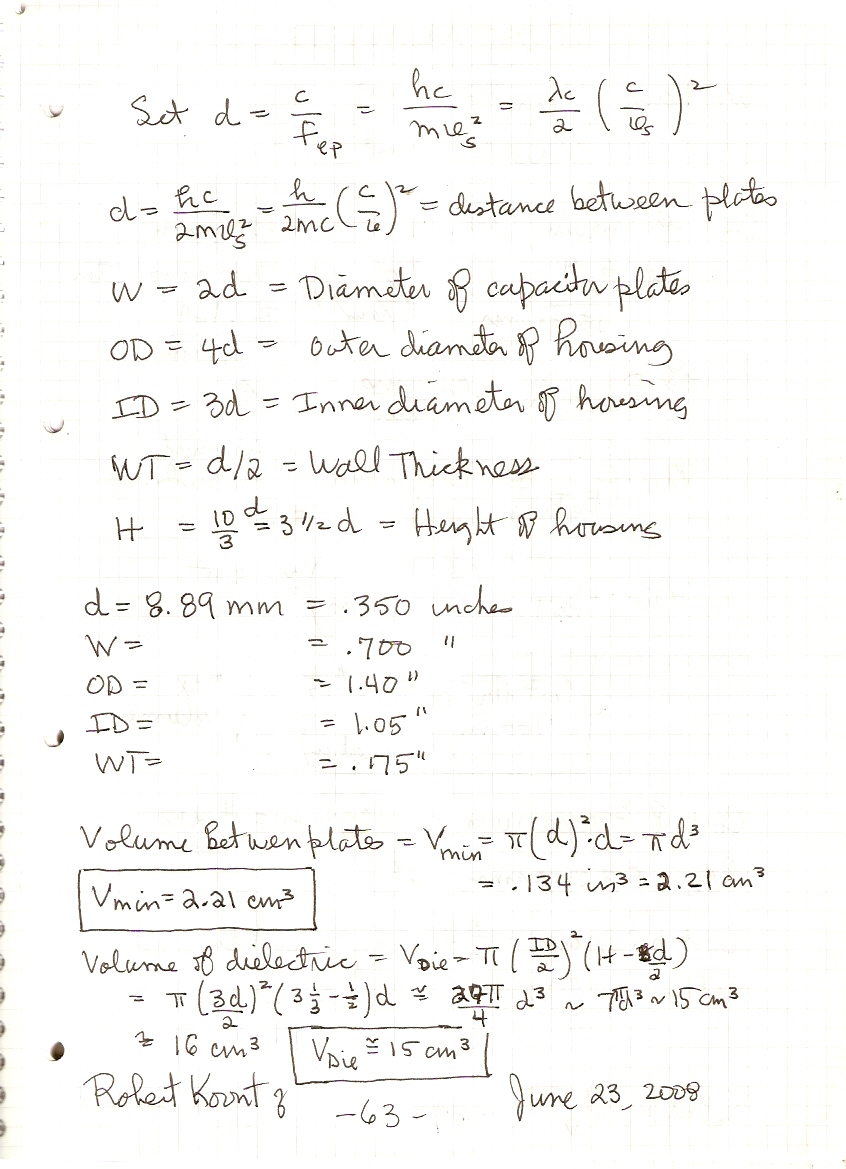 Set d = c/f_ep = hc/mv_s² = λc/2 (c/v_s)²
d = hc/2mv_s² = h/2mc (c/v)² = distance between plates
W = 2d = Diameter of capacitor plates
OD = 4d = outer diameter of housing
ID = 3d = Inner diameter of housing
WT = d/2 = Wall Thickness
H = 10/3 d = 3 1/2 d = Height of housing
d = 8.89 mm = .350 inches
W = = .700 "
OD = = 1.40 "
ID = = 1.05 "
WT = = .175 "
Volume Betwen plates = Vmin = π(d)²·d = πd³
= .134 in³ = 2.21 cm³
Vmin = 2.21 cm³
Volume of dielectric = V_Die = π (ID/2)² (H - d/2)
= π (3d/2)² (3 1/3 - 1/2) d ≅ 27π/4 d³ ~ 7πd³ ~ 15 cm³
≅ 16 cm³ V_Die ≅ 15 cm³
Robert Koontz -63- June 23, 2008